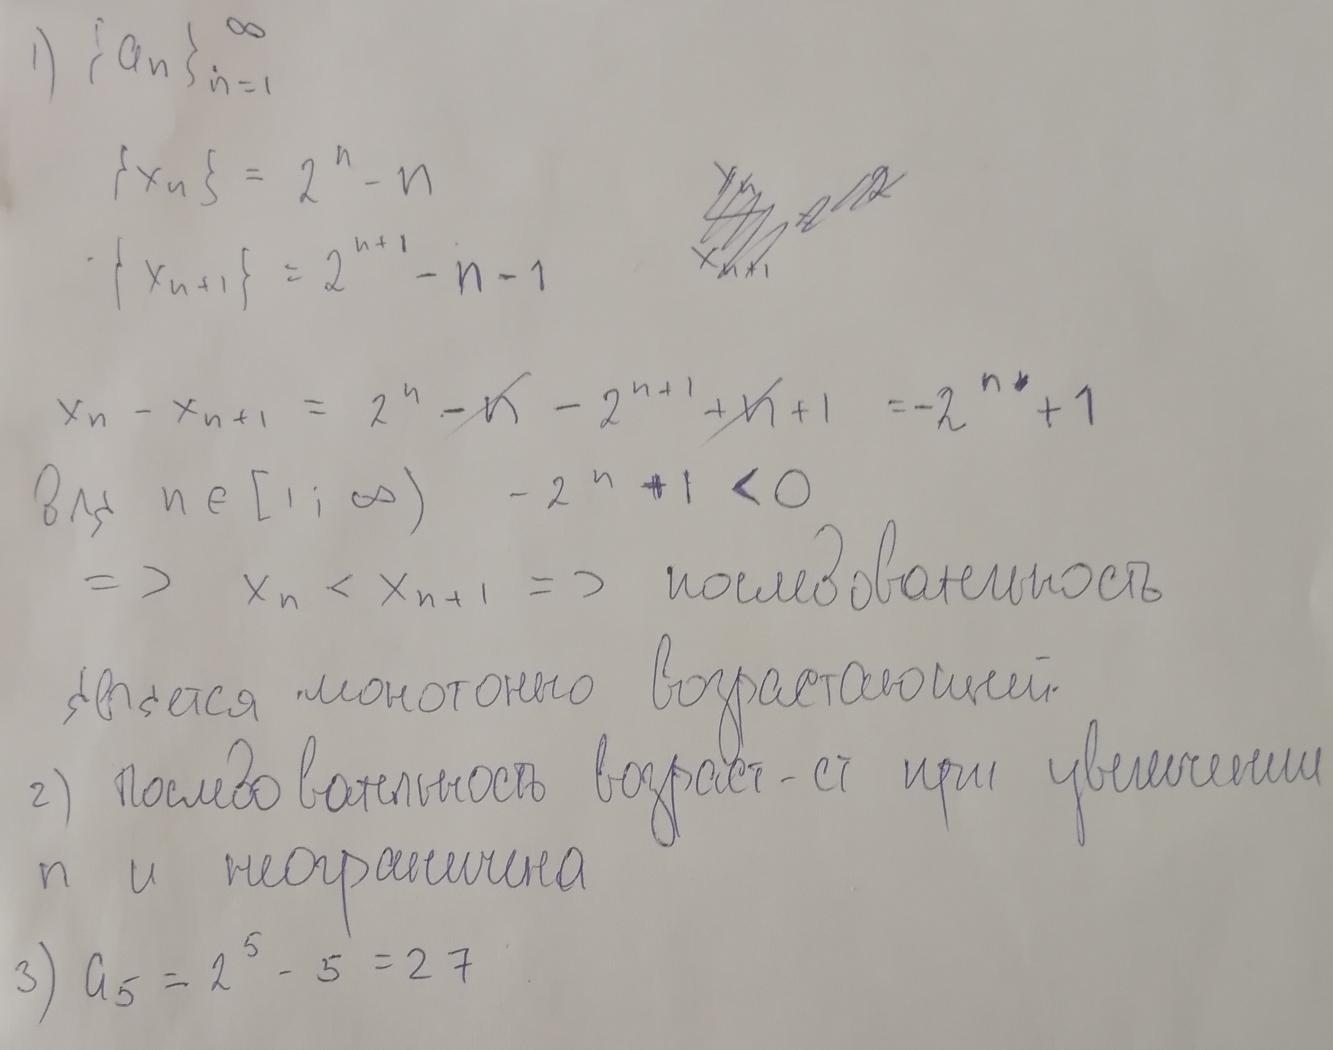 1) {a_n}_{n=1}^∞
{x_n} = 2^n - n
{x_{n+1}} = 2^{n+1} - n - 1
x_n - x_{n+1} = 2^n - n - 2^{n+1} + n + 1 = -2^n + 1
для n ∈ [1; ∞) -2^n + 1 < 0
=> x_n < x_{n+1} => последовательность
является монотонно возрастающей.
2) последовательность возраст-ст при увеличении
n и неограничена
3) a_5 = 2^5 - 5 = 27